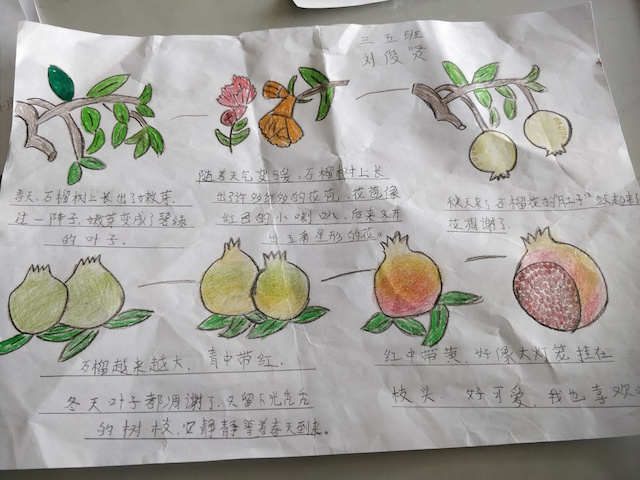 三五班
刘俊贤
春天,石榴树上长出了嫩芽,
过一阵子,嫩芽变成了碧绿
的叶子.
随着天气变暖,石榴树上长
出了许多许多的花苞,花苞像
红色的小喇叭,后来又开
出五角星形的花。
秋天来了,石榴花的"肚子"鼓起来了
花凋谢了.
石榴越来越大,青中带红,
红中带黄,好像大灯笼挂在
枝头.好可爱,我也喜欢
冬天叶子都凋谢了,又留下光秃秃
的树枝,它静静等着春天到来。